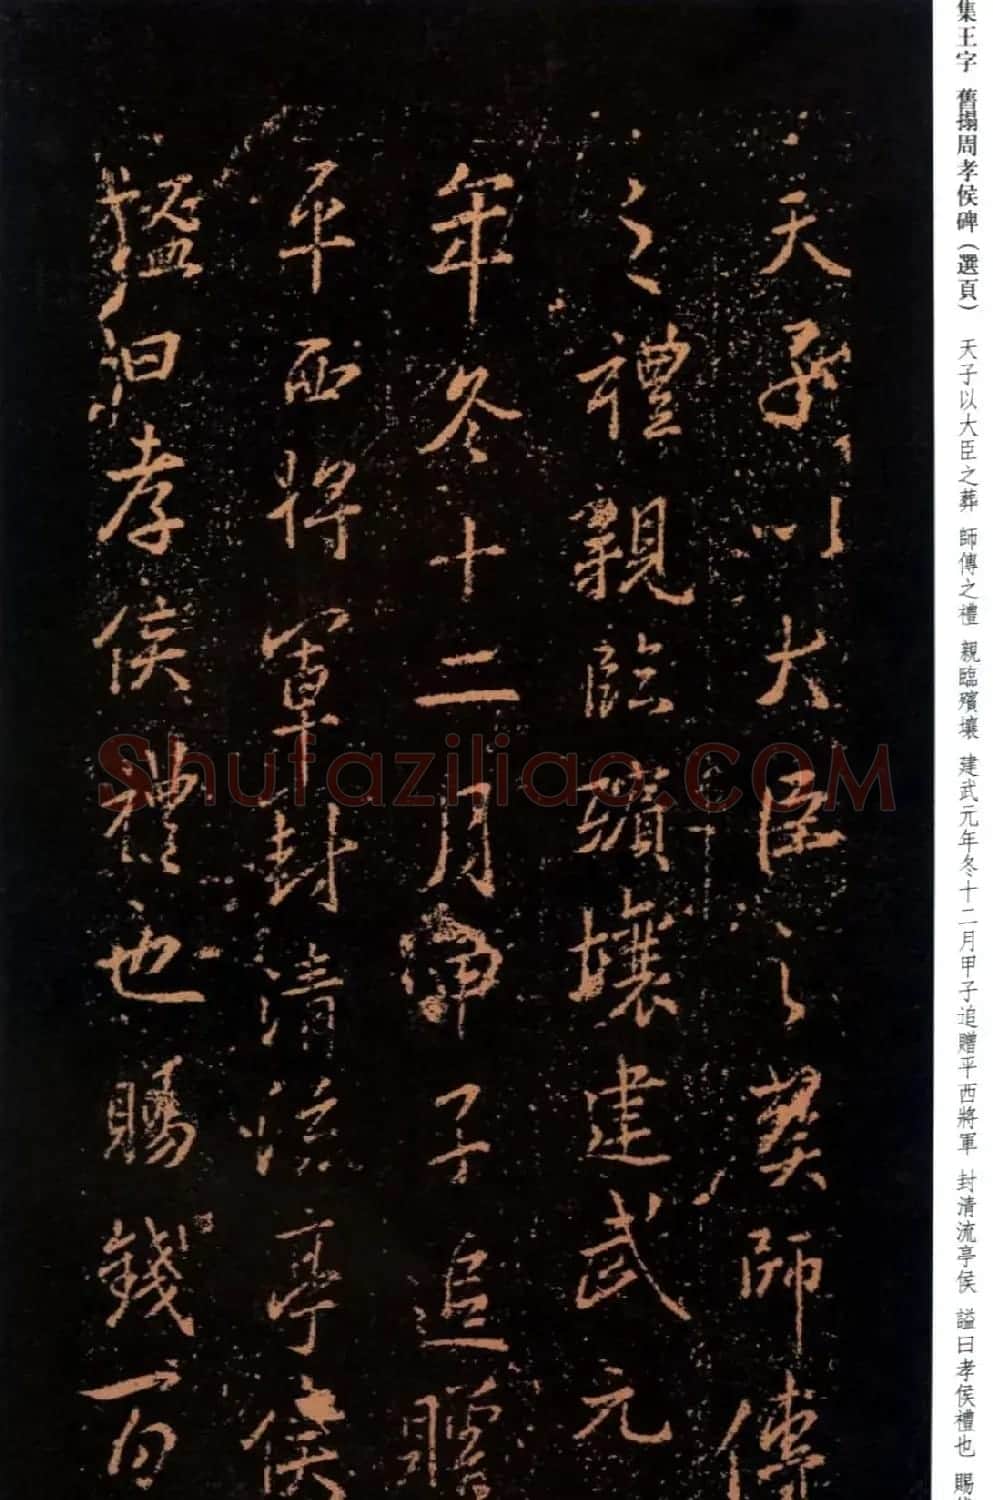 集王字 舊搨周孝侯碑(選頁) 天子以大臣之葬 師傅之禮 親臨殯壤 建武元年冬十二月甲子追贈平西將軍 封清流亭侯 謚曰孝侯禮也 賜
天子以大臣之葬師傅
之禮親臨殯壤建武元
年冬十二月甲子追贈
平西將軍封清流亭侯
謚曰孝侯禮也賜錢百
Shufaziliao.COM